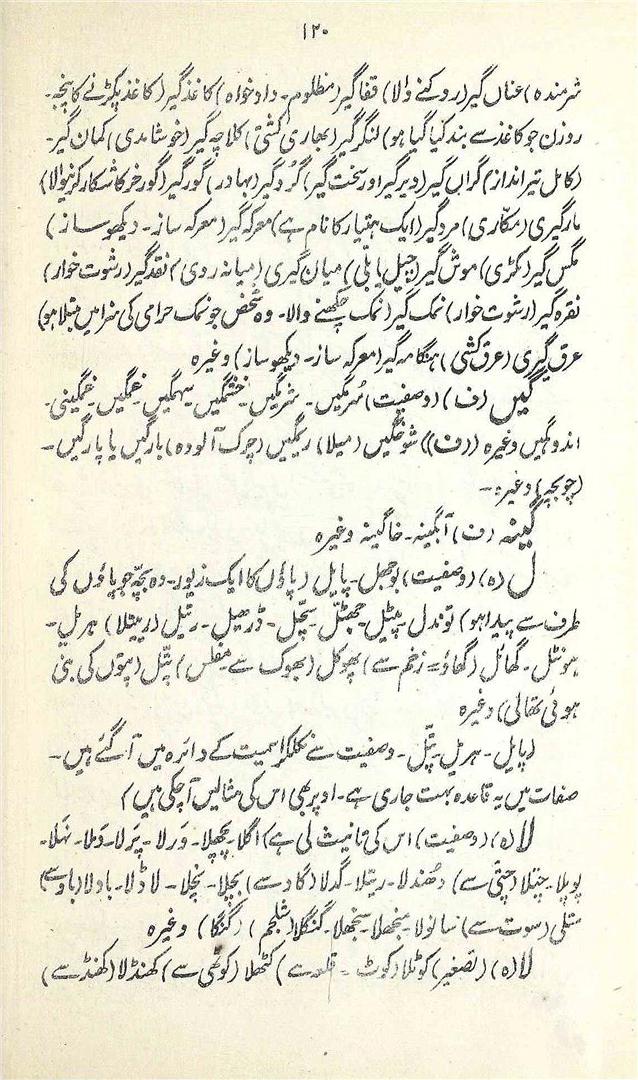 ۱۲۰
شرمندہ) عناں گیر (روکنے والا) قفاگیر (مظلوم۔ دادخواہ) کاغذ گیر (کاغذ پکڑنے کا پنجہ۔
روزن جو کاغذ سے بند کیا گیا ہو) لنگر گیر (بھاری کشتی) کلاچہ گیر (خوشامدی) کمان گیر۔
(کامل تیر انداز) گراں گیر (دیرگیر اور سخت گیر) گُردگیر (بہادر) گورگیر (گورخر کا شکار کرنیوالا)
مارگیری (مکّاری) مردگیر (ایک ہتیار کا نام ہے) معرکہ گیر (معرکہ ساز۔ دیکھو ساز)
مگس گیر (مکڑی) موش گیر (چیل یا بلی) میان گیری (میانہ روی) نقد گیر (رشوت خوار)
نقرہ گیر (رشوت خوار) نمک گیر (نمک چکھنے والا۔ وہ شخص جو نمک حرامی کی سزا میں مبتلا ہو)
عرق گیری (عرق کشی) ہنگامہ گیر (معرکہ ساز۔ دیکھو ساز) وغیرہ
گیں (ف) (وصفیت) سُرمگیں۔ شرمگیں۔ خشمگیں۔ سہمگیں۔ غمگیں۔ غمگینی۔
اندوہگیں وغیرہ ((ف)) شوخگیں (میلا) ریمگیں (چرک آلودہ) بارگیں یا پارگیں۔
(چوبچہ) وغیرہ۔
گینہ (ف) آبگینہ۔ خاگینہ وغیرہ
ل (ہ) (وصفیت) بوجھل۔ پایل (پاؤں کا ایک زیور۔ وہ بچّہ جو پاؤں کی
طرف سے پیدا ہو) توندل۔ پیٹل۔ جھٹل۔ سچّل۔ ڈڑھیل۔ رتیل (ریتلا) ہریل۔
ہونٹل۔ گھائل (گھاؤ = زخم سے) بھوکل (بھوک سے۔ مفلس) پتّل (پتوں کی بنی
ہوئی تھالی) وغیرہ
(پایل۔ ہریل پتّل۔ وصفیت سے نکلکر اسمیت کے دائرہ میں آ گئے ہیں۔
صفات میں یہ قاعدہ بہت جاری ہے۔ اوپر بھی اس کی مثالیں آچکی ہیں)
لا (ہ) (وصفیت) اس کی تانیث لی ہے) اگلا۔ پچھلا۔ وَرلا۔ پَرلا۔ دَہلا۔ نہلا۔
پوپلا۔ چپٹلا (چپٹی سے) دُھندلا۔ ریتلا۔ گدلا (گاد سے) بچلا۔ نچلا۔ لاڈلا۔ باولا (باو سے)
ستلی (سوت سے) سانولا۔ منجھلا۔ سنجھلا۔ گنگلا (شلجم) (گنگا) وغیرہ
لا (ہ) (تصغیر) کوٹلا (کوٹ۔ قلعہ سے) کٹھلا (کوٹھی سے) کھنڈلا (کھنڈ سے)